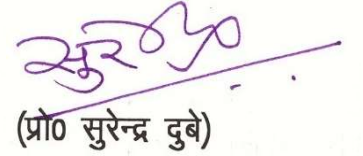 (प्रो० सुरेन्द्र दुबे)